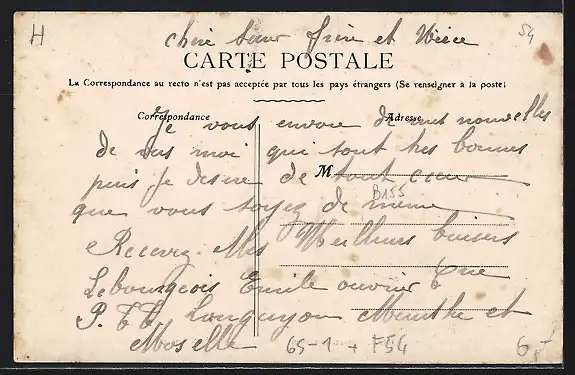 H
54
chère sœur frère et Nièce
CARTE POSTALE
La Correspondance au recto n'est pas acceptée par tous les pays étrangers (Se renseigner à la poste)
Correspondance
Adresse
Je vous envoie de mes nouvelles
de mes moi qui sont très bonnes
M
puis je désire de tout cœur
B155
que vous soyez de même
Recevez Mes Meilleurs baisers
Lebourgeois Emile ouvrier
P. T T Longuyon Meurthe et
Moselle
65-1 + F54
6-